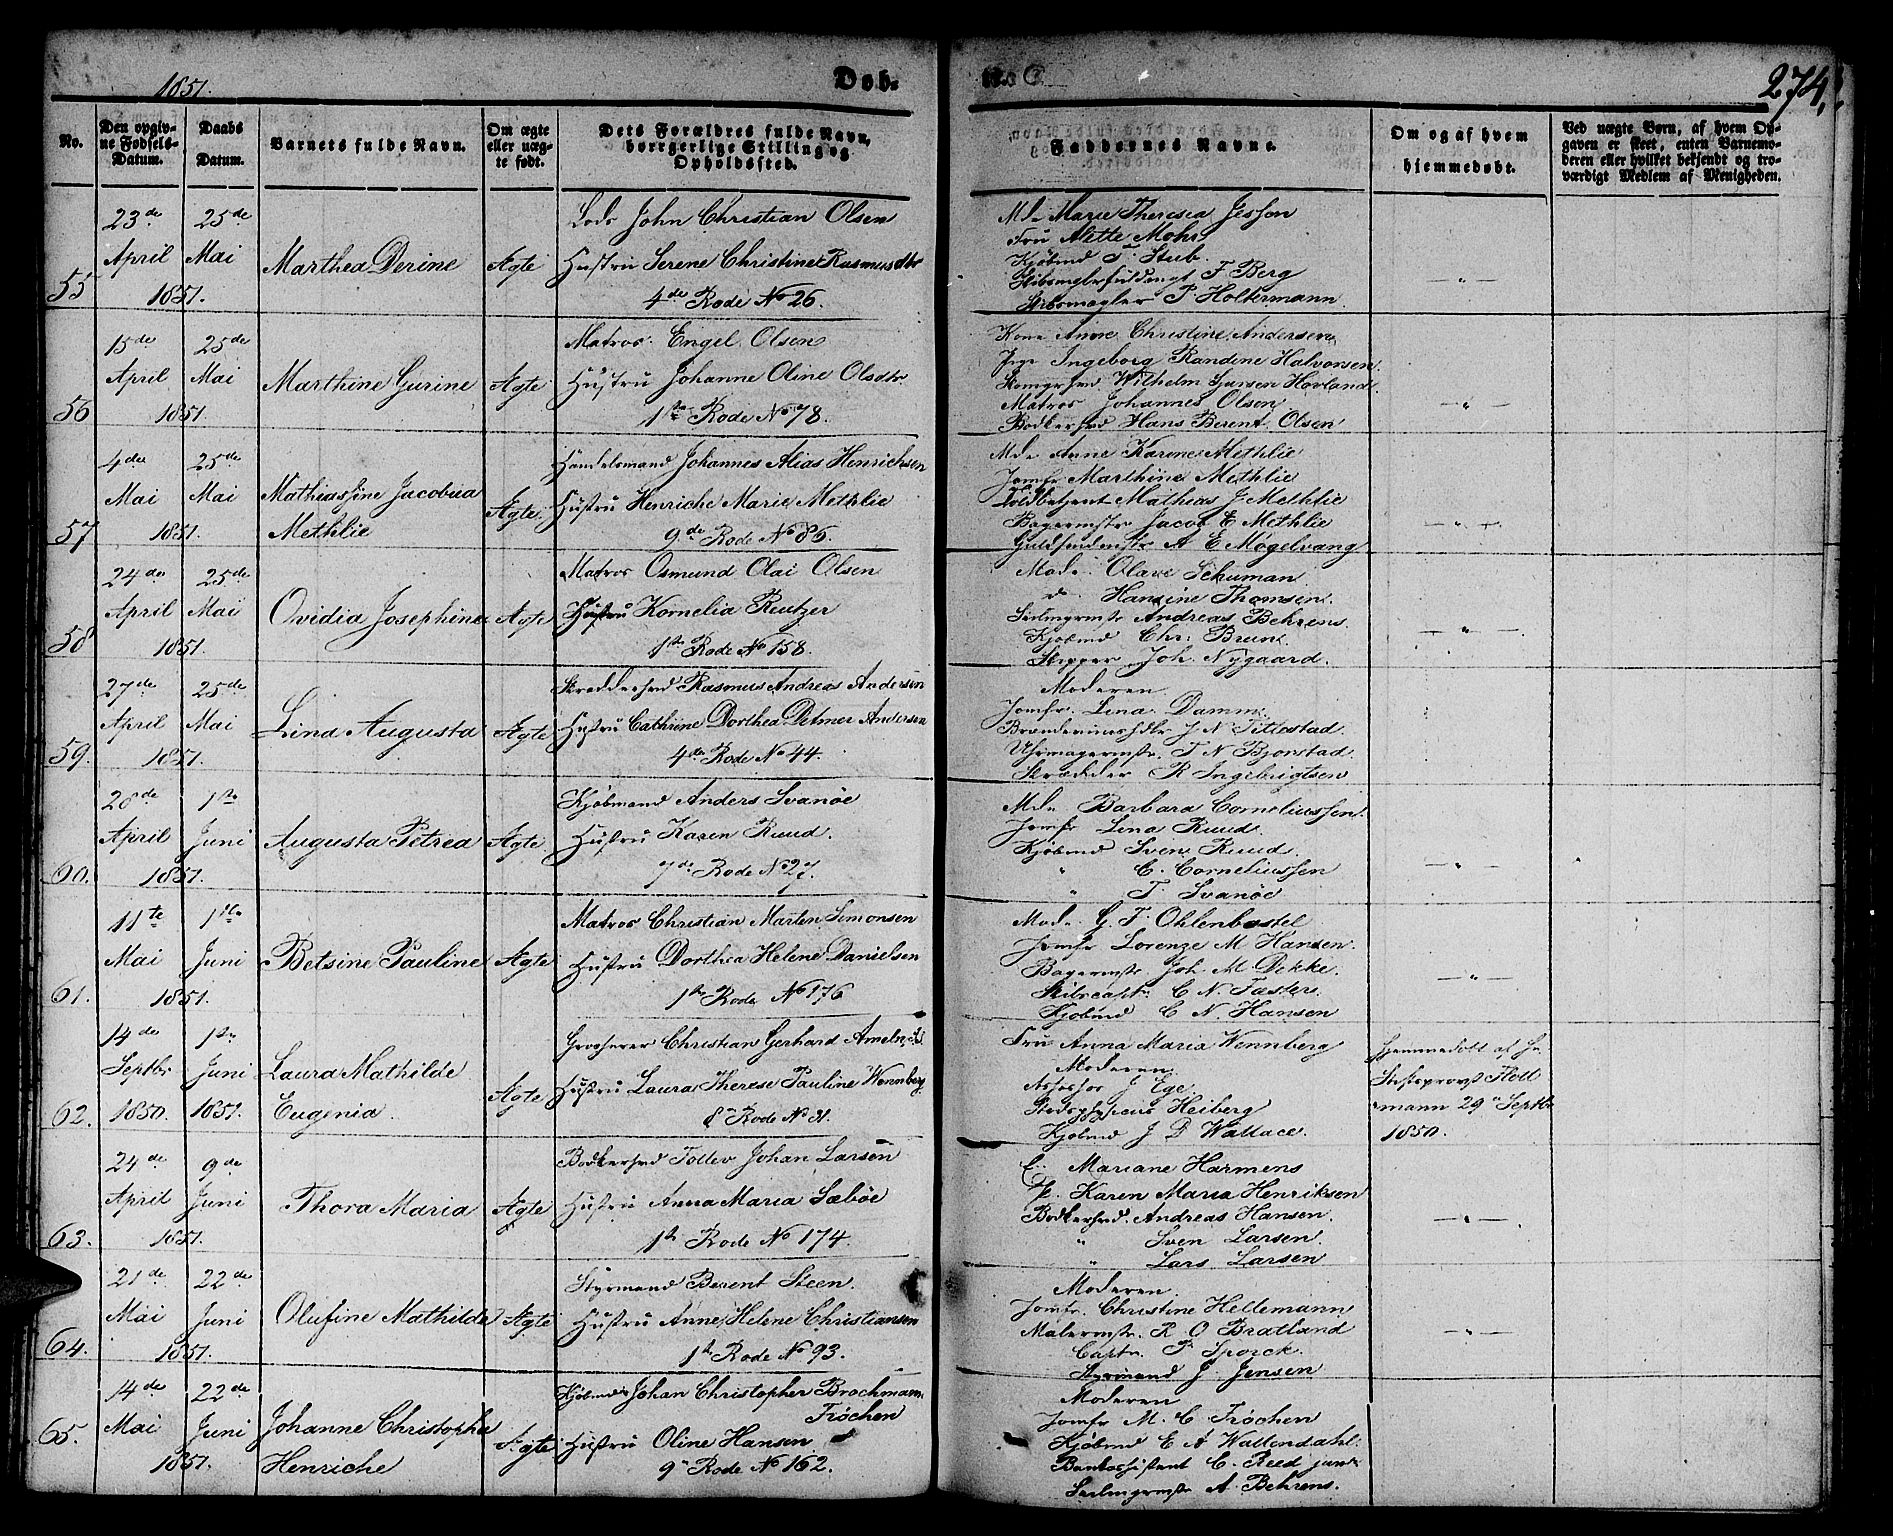 1851.
Døb-
te.
274.
No.
Den opgiv-
ne Fødsels-
Datum.
Daabs
Datum.
Barnets fulde Navn.
Om ægte
eller uæg-
te født.
Dets Forældres fulde Navn,
borgerlige Stilling og
Opholdssted.
Faddernes Navne.
Om og af hvem
hjemmedøbt.
Ved uægte Børn, af hvem Op-
gaven er skeet, enten Barnemo-
deren eller hvilket bekjendt og tro-
værdigt Medlem af Menigheden.
55
23de April 1851.
25de Mai
Marthea Derine
Ægte
Lods John Christian Olsen
Hustru Serene Christine Rasmusdtr
4de Rode No 26.
Mde Marie Theresia Jesson
Fru Mette Mohr
Kjøbmd T Stub.
F Berg
Skibsmægler P Holtermann.
— " —
56
15de April 1851.
25de Mai
Marthine Gurine
Ægte
Matros Engel Olsen
Hustru Johanne Oline Olsdtr
1ste Rode No 78.
Kone Anne Christine Andersen
Pige Ingeborg Randine Halvorsen.
Wilhelm Hovland
Matros Johannes Olsen
Bødkersvd Hans Berent Olsen
— " —
57
4de Mai 1851.
25de Mai
Mathiassine Jacobia
Methlie
Ægte.
Handelsmand Johannes Alias Henrichsen
Hustru Henriche Marie Methlie
9de Rode No 86.
Mde Anne Karine Methlie
Jomfr Marthine Methlie
Toldbetjent Mathias J. Methlie
Bagermstr Jacob E Methlie
A E Møgelvang
— " —
58
24de April 1851.
25de Mai
Ovidia Josephine
Ægte
Matros Osmund Olai Olsen
Hustru Kornelia Reutzer
1ste Rode No 158.
Mde. Olave Schuman
do. Hansine Thomsen.
Seilmgrmstr Andreas Behrens.
Kjøbmd Chr. Brun.
Skipper Joh. Nygaard.
— " —
59.
27de April 1851.
25de Mai
Lina Augusta
Ægte
Skræddersvd Rasmus Andreas Andersen
Hustru Cathrine Dorthea Ditmer Andersen
4de Rode No 44.
Moderen
Jomfr. Lina Damm.
J N Tittestad.
Uhrmagermstr. T N Bjonstad.
Skrædder R Ingebrigtsen
60.
28de April 1851.
1ste Juni
Augusta Petrea
Ægte
Kjøbmand Anders Svanøe
Hustru Karen Ruud.
7de Rode No 27.
Mde Barbara Corneliussen.
Jomfr Lina Ruud.
Kjøbmd Sven Ruud.
" C. Corneliussen
" T. Svanøe
— " —
61.
11te Mai 1851.
1ste Juni
Betsine Pauline
Ægte
Matros Christian Marten Simonsen
Hustru Dorthea Helene Danielsen
1ste Rode No 176
Mde. G. T. Ohlenbostel
Jomfr Lorenze M Hansen.
Bagermstr Joh. M Dekke.
Skibscapt. C N. Fasters.
Kjøbmd C N. Hansen
— " —
62.
14de Septbr 1850.
1ste Juni 1851.
Laura Mathilde
Eugenia.
Ægte
Grosserer Christian Gerhard Ameln
Hustru Laura Therese Pauline Wennberg
8de Rode No 31.
Fru Anna Maria Wennberg
Moderen
Assessor J Ege
Stadsphysicus Heiberg
Kjøbmd J D Wallace.
Hjemmedøbt af Hr
Stiftsprovst Kolt
mann 29de Septbr
1850.
63.
24de April 1851.
9de Juni
Thora Maria
Ægte
Bødkersvd Tollev Johan Larsen
Hustru Anna Maria Sæbøe
1ste Rode No 174.
Mariane Harmens
P. Karen Maria Henriksen
Bødkersvd. Andreas Hansen.
" Sven Larsen
" Lars Larsen
— " —
64.
21de Mai 1851.
22de Juni
Olufine Mathilde
Ægte
Styrmand Berent Steen
Hustru Anne Helene Christiansen
1ste Rode No 93.
Moderen.
Jomfr. Christine Hellemann
Malermstr. R. O Bratland
Captn. P. Sporck.
Styrmand J. Jensen
— " —
65.
14de Mai 1851.
22de Juni
Johanne Christophe
Henriche
Ægte
Kjøbmd Johan Christopher Brochmann
Frøchen
Hustru Oline Hansen
9de Rode No 162.
Moderen
Jomfr M. C. Frøchen
Kjøbmd E A Wallendahl.
Bankassistent C. Reed junr
Seilmgrmstr A. Behrens.